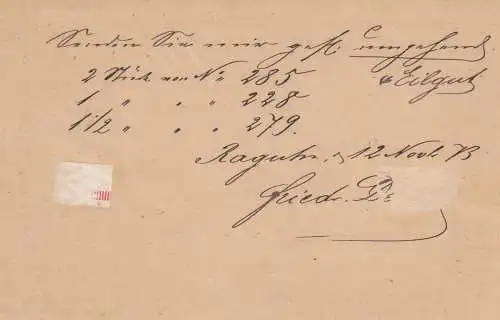 Senden Sie mir gefl. umgehend
2 Stück von No 285 p Eilgut
1 " " " 228
1 1/2 " " " 279.
Raguhn, d 12 Novbr. 73
Friedr.